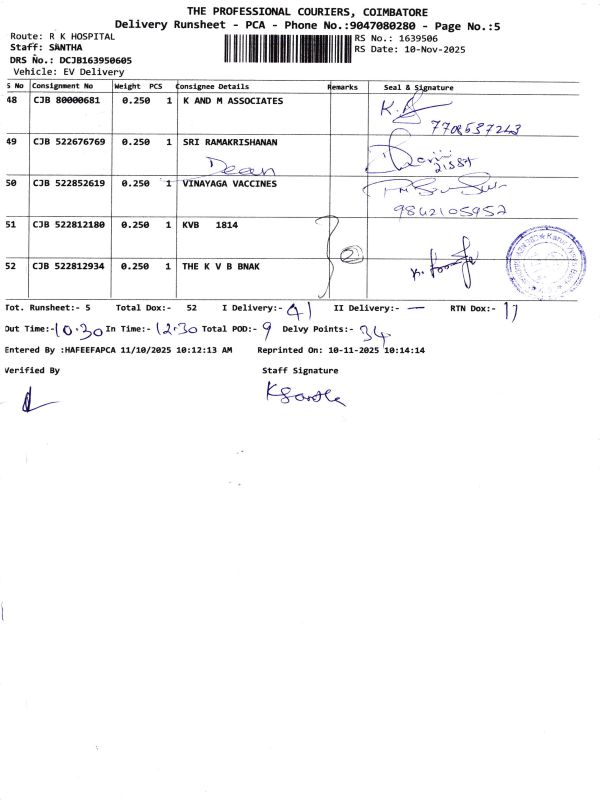 THE PROFESSIONAL COURIERS, COIMBATORE
Delivery Runsheet - PCA - Phone No.:9047080280 - Page No.:5
Route: R K HOSPITAL
RS No.: 1639506
Staff: SANTHA
RS Date: 10-Nov-2025
DRS No.: DCJB163950605
Vehicle: EV Delivery
S No Consignment No Weight PCS Consignee Details Remarks Seal & Signature
48 CJB 80000681 0.250 1 K AND M ASSOCIATES
49 CJB 522676769 0.250 1 SRI RAMAKRISHANAN
Dean
50 CJB 522852619 0.250 1 VINAYAGA VACCINES
9842105952
51 CJB 522812180 0.250 1 KVB 1814
2
52 CJB 522812934 0.250 1 THE K V B BNAK
Tot. Runsheet:- 5 Total Dox:- 52 I Delivery:- 41 II Delivery:- — RTN Dox:- 11
Out Time:- 10.30 In Time:- 12.30 Total POD:- 9 Delvy Points:- 34
Entered By :HAFEEFAPCA 11/10/2025 10:12:13 AM Reprinted On: 10-11-2025 10:14:14
Verified By Staff Signature
KSantha